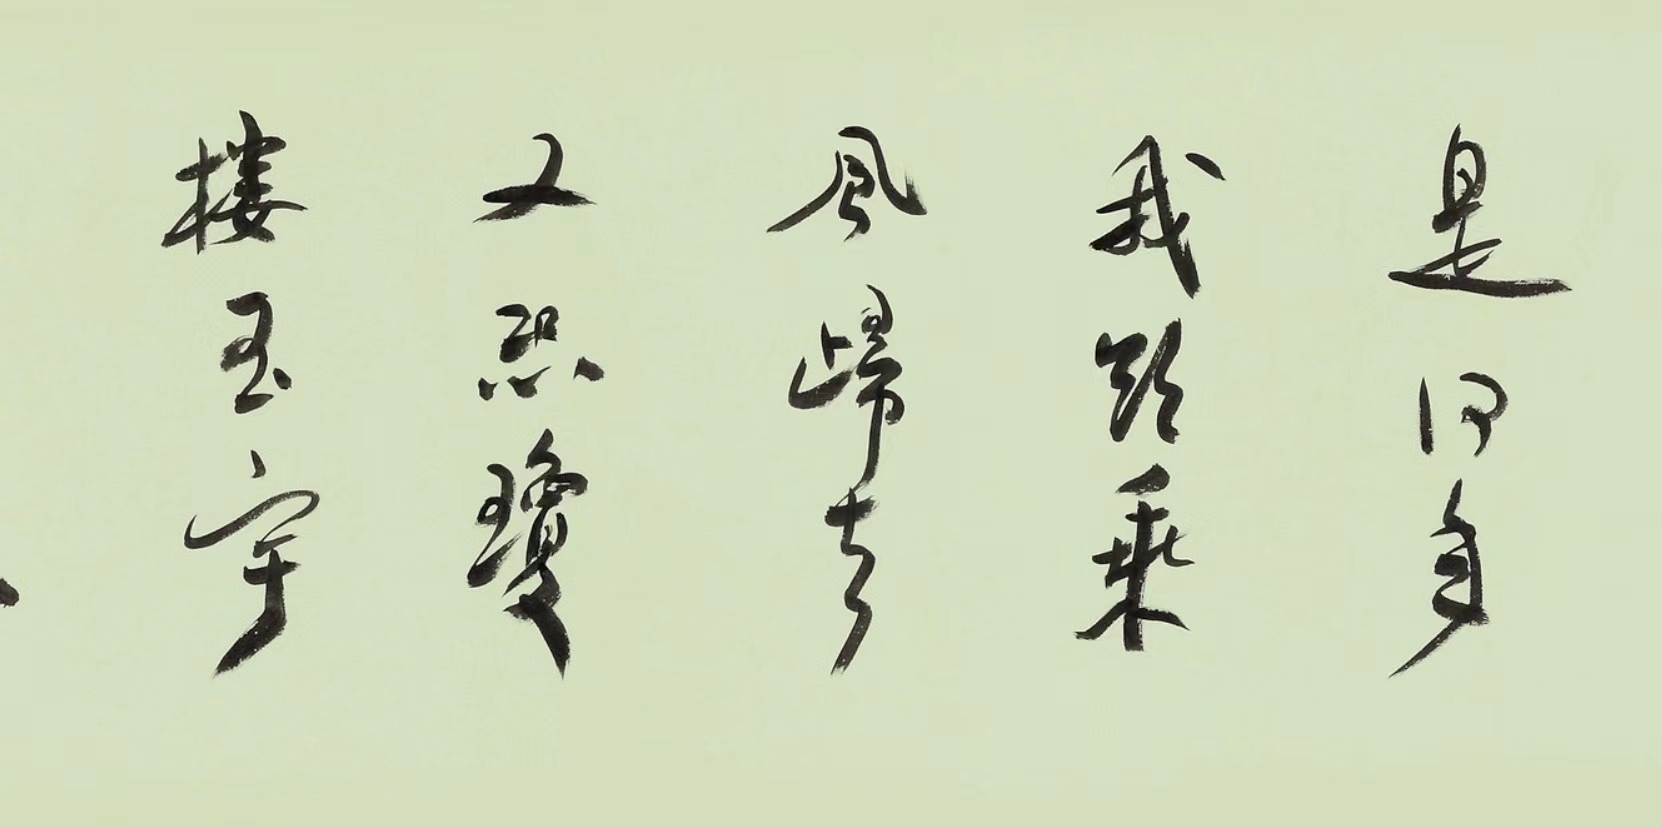 是何年
我欲乘
風歸去
又恐瓊
樓玉宇